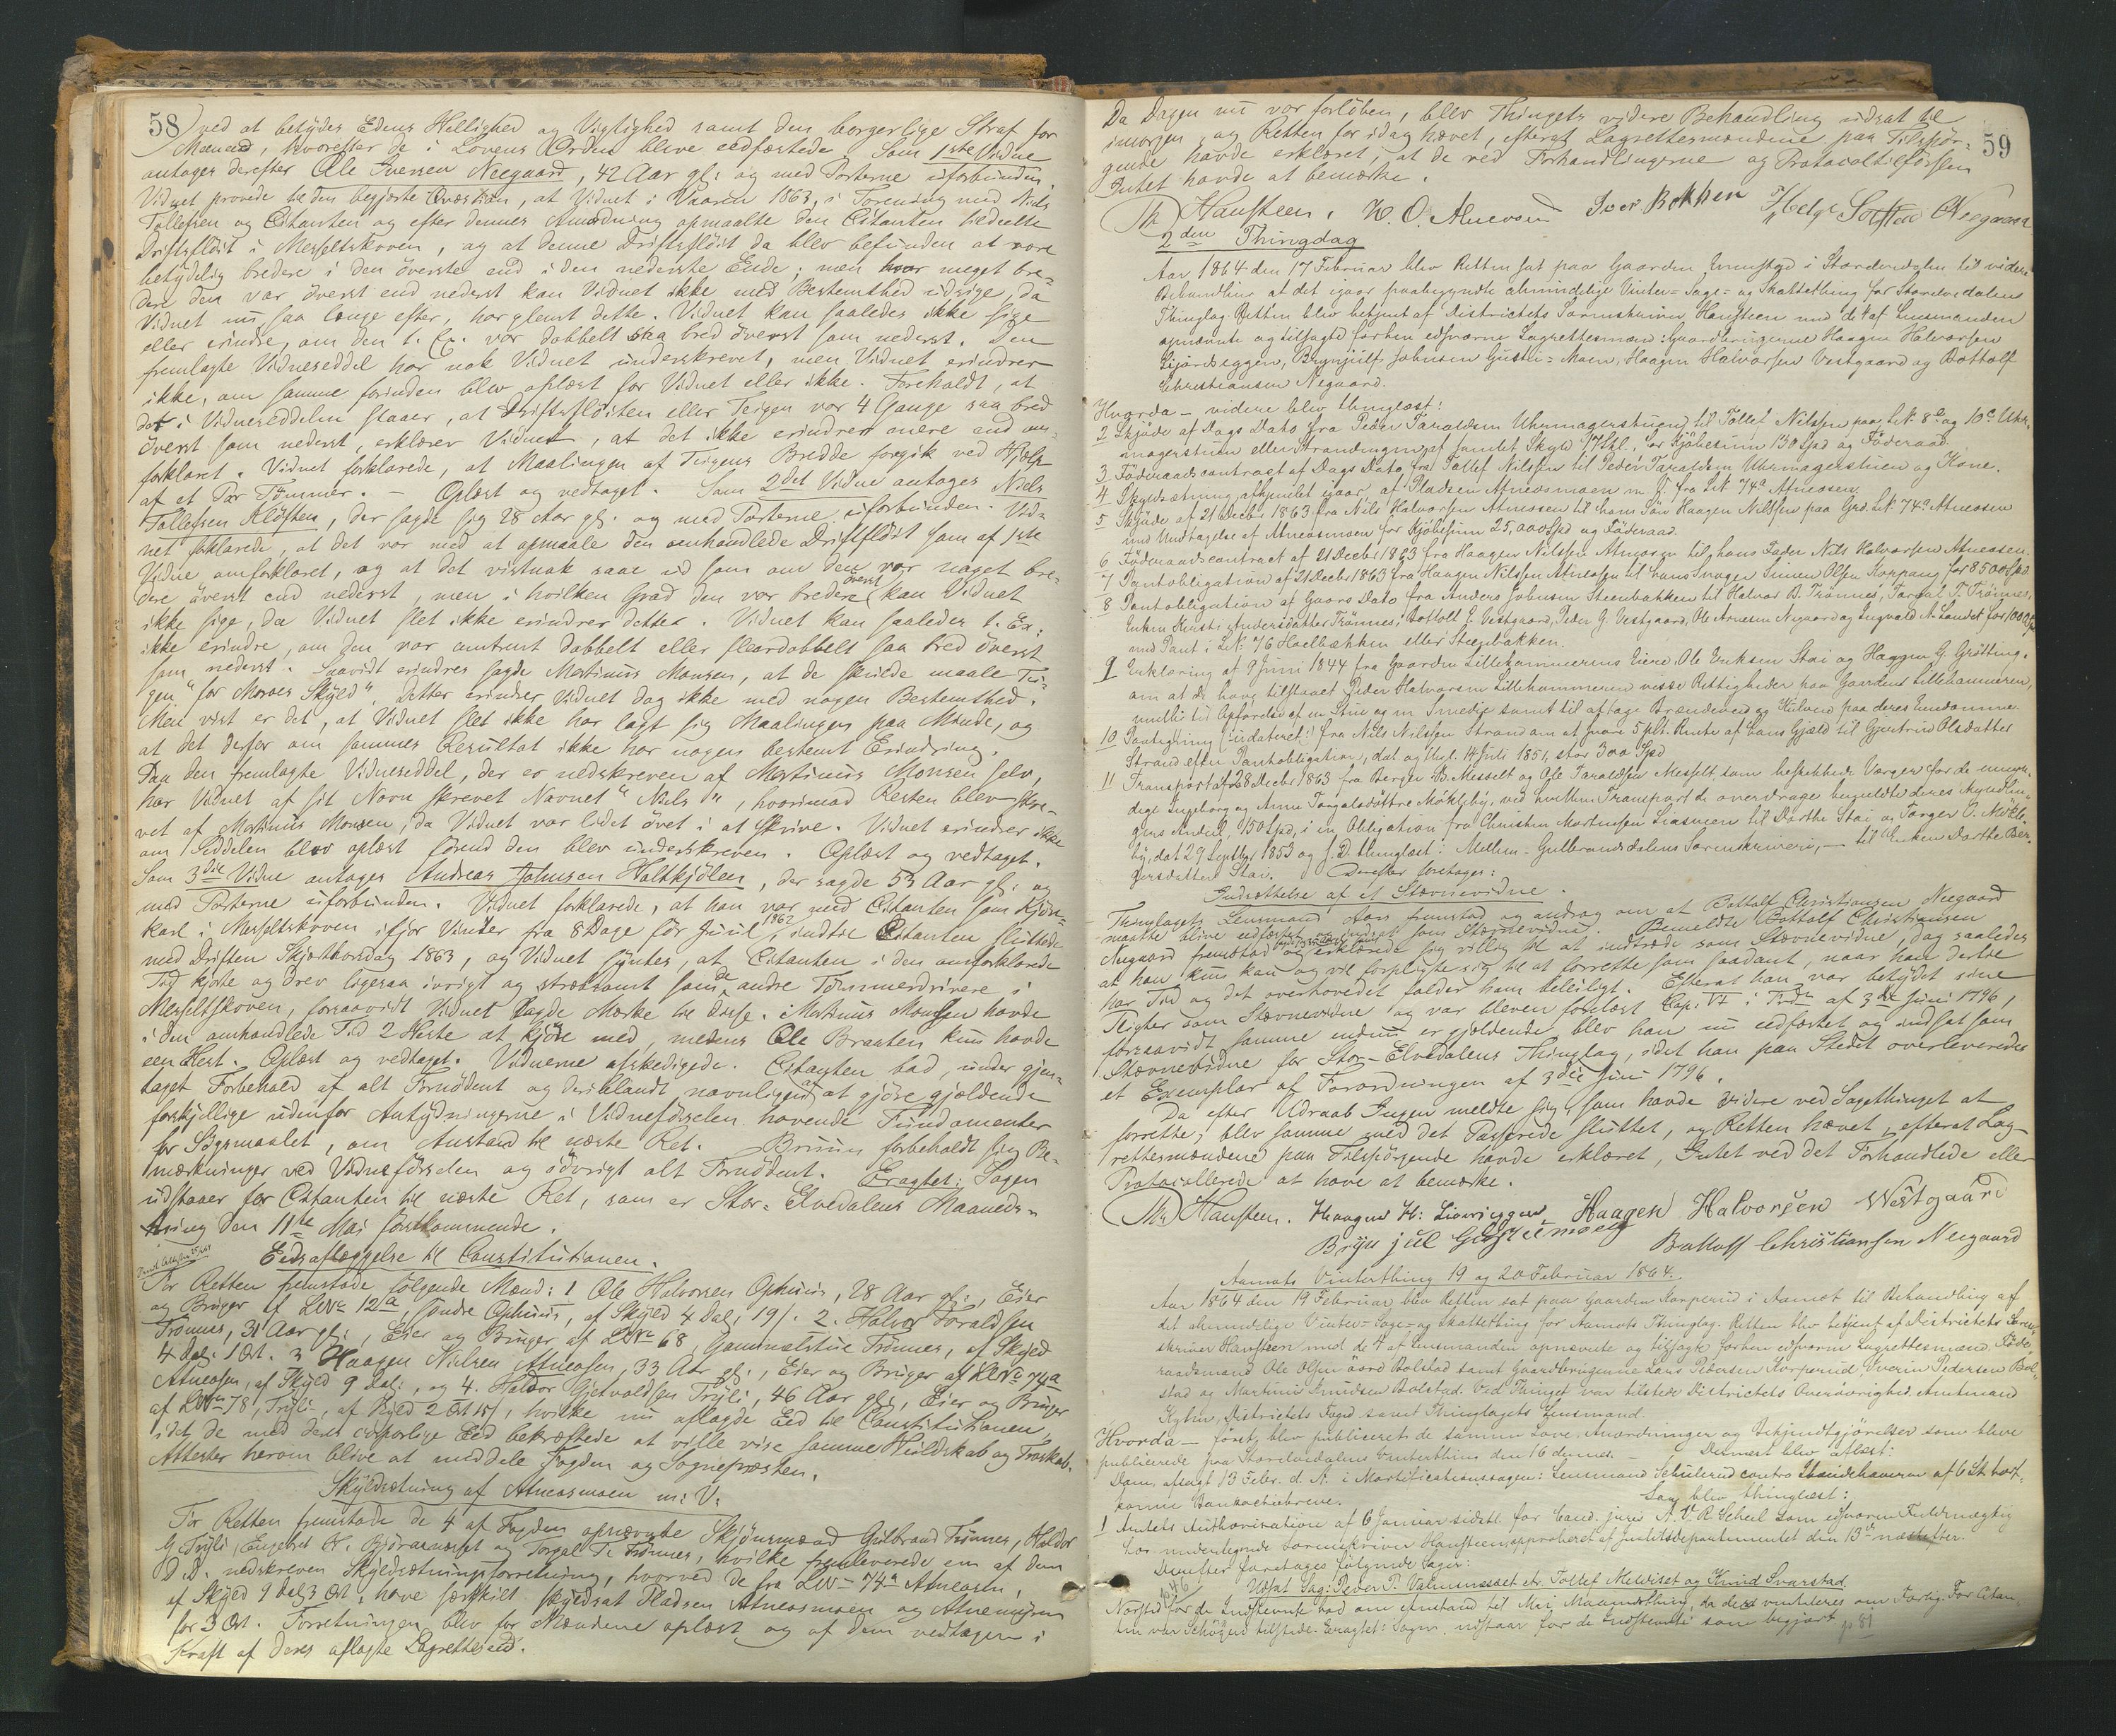 58
ved at betydes Edens Hellighed og Vigtighed samt den borgerlige Straf for
Meened, hvorefter de i Lovens Orden bleve edfæstede. Som 1ste Vidne
antages derefter Ole Iversen Neegaard, 42 Aar gl: og med Parterne uforbunden.
Vidnet provede til den begjærte Qvæstion, at Vidnet i Vaaren 1863, i Forening med Niels
Tollefsen og Citanten og efter dennes Anvisning opmaalte den Citanten tildeelte
Driftsflöit i Messeltskoven, og at denne Driftsflöit da blev befunden at være
betydelig bredere i den överste end i den nederste Ende; men hvor meget bre-
dere den var överst end nederst kan Vidnet ikke med Bestemthed udsige, da
Vidnet nu saa længe efter, har glemt dette. Vidnet kan saaledes ikke sige
eller erindre, om den t. Ex. var dobbelt saa bred överst som nederst. Den
fremlagte Vidneseddel har nok Vidnet underskrevet, men Vidnet erindrer
ikke, om samme forinden blev oplæst for Vidnet eller ikke. Foreholdt, at
det i Vidneseddelen staaer, at Driftsflöiten eller Teigen var 4 Gange saa bred
överst som nederst, erklærer Vidnet, at det ikke erindrer mere end om-
forklaret. Vidnet forklarede, at Maalingen af Teigens Bredde foregik ved Hjælp
af et Par Tömmer. - Oplæst og vedtaget. Som 2det Vidne antages Niels
Tollefsen Klöften, der sagde sig 28 Aar gl. og med Parterne uforbunden. Vid-
net forklarede, at det var med at opmaale den omhandlede Driftflöit som af 1ste
Vidne omforklaret, og at det vistnok saae ud som om den var noget bre-
dere överst end nederst, men i hvilken Grad den var bredere överst kan Vidnet
ikke sige, da Vidnet slet ikke erindrer dette. Vidnet kan saaledes t. Ex.
ikke erindre, om den var omtrent dobbelt eller fleerdobbelt saa bred överst
som nederst. Saavidt erindres sagde Martinus Monsen, at de skulde maale Tei-
gen "for Moroes Skyld". Dette erindrer Vidnet dog ikke med nogen Bestemthed.
Men vist er det, at Vidnet slet ikke har lagt sig Maalingen paa Minde, og
at det derfor om sammes Resultat ikke har nogen bestemt Erindring.
Paa den fremlagte Vidneseddel, der er nedskreven af Martinus Monsen selv,
har Vidnet af sit Navn skrevet Navnet "Niels", hvorimod Resten blev skre-
vet af Martinus Monsen, da Vidnet var lidet övet i at skrive. Vidnet erindrer ikke
om Seddelen blev oplæst förend den blev underskreven. Oplæst og vedtaget.
Som 3die Vidne antages Andreas Johnsen Holtkjölen, der sagde 53 Aar gl: og
med Parterne uforbunden. Vidnet forklarede, at han var med Citanten som Kjöre-
karl i Messeltskoven ifjor Vinter fra 8 Dage för Juul 1862 indtil Citanten sluttede
med Driften Skjærthorsdag 1863, og Vidnet syntes, at Citanten i den omforklarede
Tid kjörte og drev ligesaa ivrigt og stræbsomt som de andre Tömmerdrivere i
Messeltskoven, forsaavidt Vidnet lagde Mærke til disse. Martinus Monsen havde
i den omhandlede Tid 2 Heste at kjöre med, medens Ole Braaten kun havde
een Hest. Oplæst og vedtaget. Vidnerne afskedigede. Citanten bad, under gjen-
taget Forbehold af alt Fornödent og deriblandt navnligen af at gjöre gjældende
forskjellige udenfor Antydningerne i Vidneförselen havende Fundamenter
for Sögsmaalet, om Anstand til næste Ret. Bruun forbeholdt sig Be-
mærkninger ved Vidneförselen og iövrigt alt Fornödent. Eragtet: Sagen
udstaaer for Citanten til næste Ret, som er Stor-Elvedalens Maaneds-
thing den 11te Mai förstkommende.
Edsaflæggelse til Constitutionen.
For Retten fremstode fölgende Mænd: 1 Ole Halvorsen Ophuus, 28 Aar gl:, Eier
og Bruger af LNr 12a, söndre Ophuus, af Skyld 4 Dal: 19/. 2. Halvor Taraldsen
Trönnes, 31 Aar gl:, Eier og Bruger af LNr 68, Gammelstue Trönnes, af Skyld
4 Dal: 1 Ort. 3 Haagen Nielsen Atneosen, 33 Aar gl:, Eier og Bruger af LNr 74a
Atneosen, af Skyld 9 Dal:, og 4. Haldor Gjetvoldsen Tryli, 46 Aar gl:, Eier og Bruger
af LNr 78, Tryli, af Skyld 2 Ort 15/, hvilke nu aflagde Eed til Constitutionen,
idet de med deres corporlige Eed bekræftede at ville vise samme Huldskab og Troskab.
Attester herom blive at meddele Fogden og Sognepræsten.
Skyldsætning af Atneosmoen m: V:
For Retten fremstode de 4 af Fogden opnævnte Skjönsmænd Gulbrand Trönnes, Haldor
G. Tryli, Engebret H. Björaanæsset og Torgal T. Trönnes, hvilke fremleverede en af dem
D. D. nedskreven Skyldsætningsforretning, hvorved de fra LNr 74a Atneosen,
af Skyld 9 Dal 3 Ort, have særskilt skyldsat Pladsen Atneosmoen og Atnemyren
for 3 Ort. Forretningen blev for Mændene oplæst og af dem vedtagen i
Kraft af deres aflagte Lagretteseed.
59
Da Dagen nu var forlöben, blev Thingets videre Behandling udsat til
imorgen, og Retten for idag hævet, efterat Lagrettesmændene paa Tilspör-
gende havde erklæret, at de ved Forhandlingerne og Protocoltilförslen
Intet havde at bemærke.
Th Hansteen. K. O. Alnevsen Iver Bekken Helge Neegaard
2den Thingdag
Aar 1864 den 17 Februar blev Retten sat paa Gaarden Imnstad i Storelvedalen til videre
Behandling at det igaar paabegyndte almindelige Vinter- Sage- og Skattething for Storelvedalens
Thinglag. Retten blev betjent af Districtets Sorenskriver Hansteen med de 4 af Lensmanden
opnævnte og tilsagte forhen edsvorne Lagrettesmænd: Gaardbrugerne Haagen Halvorsen
Livardseggen, Brynjulf Johnsen Gustu-Moen, Haagen Halvorsen Vestgaard og Bottolf
Christiansen Negaard.
Hvorda - videre blev thinglæst:
2 Skjöde af Dags Dato fra Peder Taraldsen Uhrmagerstuen til Tollef Nilsen paa LN. 8e og 10c Uhr-
magerstuen eller Strandengen af samlet Skyld , for Kjöbesum 130 Spd og Föderaad.
3 Föderaadscontract af Dags Dato fra Tollef Nilsen til Peder Taraldsen Uhrmagerstuen og Kone.
4 Skyldsætning afhjemlet igaar, af Pladsen Atneosmoen m. V. fra LN 74a Atneosen.
5 Skjöde af 21 Decbr 1863 fra Nils Halvorsen Atneosen til hans Sön Haagen Nilsen paa Grd. LN. 74a Atneosen
med Undtagelse af Atneosmoen for Kjöbesum 25,000 Spd og Föderaad.
6 Föderaadscontract af 21 Decbr 1863 fra Haagen Nilsen Atneosen til hans Fader Nils Halvorsen Atneosen.
7 Pantobligation af 21 Decbr 1863 fra Haagen Nilsen Atneosen til hans Svoger Simen Olsen Koppang for 8500 Spd.
8 Pantobligation af Gaars Dato fra Anders Johnsen Steenbakken til Halvor B. Trönnes, Torgal T. Trönnes,
Enken Kirsti Andersdatter Trönnes, Bottolf E. Vestgaard, Peder G. Vestgaard, Ole Arnesen Negaard og Ingvald A. Landet for 1000 Spd
med Pant i LN. 76 Hoelbækken eller Steenbakken.
9 Erklæring af 9 Juni 1844 fra Gaarden Lillehammerens Eiere Ole Eriksen Stai og Haagen G. Grötting
om at de have tilstaaet Peder Halvorsen Lillehammeren visse Rettigheder paa Gaarden Lillehammeren,
nemlig til Opförelse af en Stue og en Smedje samt til aftage Brændeved og Kulved paa deres Eiendomme.
10 Pantegning (:udateret:) fra Nils Nilsen Strand om at svare 5 pCt. Rente af hans Gjæld til Gjertrud Olsdatter
Strand efter Pantobligation, dat og thgl. 14 Juli 1851, stor 300 Spd
11 Transport af 28 Decbr 1863 fra Berger B. Messelt og Ole Taraldsen Messelt, som beskikkede Værger for de umyn-
dige Ingeborg og Anne Torgalsdöttre Möklebÿ, ved hvilken Transport de overdrage bemeldte deres Myndlin-
gers Andeel, 150 Spd, i en Obligation fra Christen Mortensen Liasneen til Dorthe Stai og Torger O. Mökle-
by, dat 29 Septbr 1853 og s. D. thinglæst i Mellem-Gulbrandsdalens Sorenskriveri, - til Enken Dorthe Ber-
gersdatter Stai. Derefter foretages:
Indsættelse af et Stævnevidne.
Thinglagets Lensmand Aars fremstod og androg om at Bottolf Christiansen Neegaard
maatte blive edfæstet og indsat som Stævnevidne. Bemeldte Bottolf Christiansen
Neegaard fremstod og erklærede sig villig til at indtræde som Stævnevidne, dog saaledes
at han kun kan og vil forpligte sig til at forrette som saadant, naar han dertil
har Tid og det overhovedet falder ham beleiligt. Efterat han var betydet sine
Pligter som Stævnevidne og var bleven forelæst Cap. VI i Frdn af 3die Juni 1796,
forsaavidt samme endnu er gjældende, blev han nu edfæstet og indsat som
Stævnevidne for Stor-Elvedalens Thinglag, idet han paa Stedet overleveredes
et Exemplar af Forordningen af 3die Juni 1796.
Da efter Udraab Ingen meldte sig, som havde videre ved Sagethinget at
forrette, blev samme med det Passerede sluttet, og Retten hævet, efterat Lag-
rettesmændene paa Tilspörgende havde erklæret, Intet ved det Forhandlede eller
Protocollerede at have at bemærke.
Th Hansteen. Haagen H: Haagen Halvorsen Westgaard
Bryn jul Bottolf Christiansen Neegaard
Aamots Vinterthing 19 og 20 Februar 1864.
Aar 1864 den 19 Februar blev Retten sat paa Gaarden Korperud i Aamot til Behandling af
det almindelige Vinter- Sage- og Skattething for Aamots Thinglag. Retten blev betjent af Districtets Soren-
skriver Hansteen med de 4 af Lensmanden opnævnte og tilsagte forhen edsvorne Lagrettesmænd, Föde-
raadsmand Ole Olsen Bolstad samt Gaardbrugerne Lars Pedersen Korperud, Iverin Pedersen Bol-
stad og Martinus Knudsen Bolstad. Ved Thinget var tilstede Districtets Överövrighed, Amtmand
Kyhn, Districtets Foged samt Thinglagets Lensmand.
Hvorda - först, blev publiceret de samme Love, Anordninger og Bekjendtgjörelser som bleve
publicerede paa Storelvedalens Vinterthing den 16 dennes. - Dernæst blev aflæst:
Dom, afsagt 13 Febr. d. A. i Mortificationssagen: Lensmand Schulerud contra Ihændehaveren af 6 St. bort-
komne Bankactiebreve. Saa blev thinglæst:
1 Amtets Authorisation af 6 Januar sidstl. for Cand. juris A. V. R. Scheel som edsvoren Fuldmægtig
hos undertegnede Sorenskriver Hansteen, approberet af Justitsdepartementet den 13de næstefter.
Derefter foretages fölgende Sager:
Udsat Sag: Peder P. Valmsnæsset ctr. Tollef Melvoldset og Knud Svarstad.
Norsted for de Indstevnte bad om Anstand til Mai Maanedsthing, da der ventedes om Forlig. For Citan-
ten var Schöyen tilstede. Eragtet: Sagen udstaar for de Indstevnte som begjært